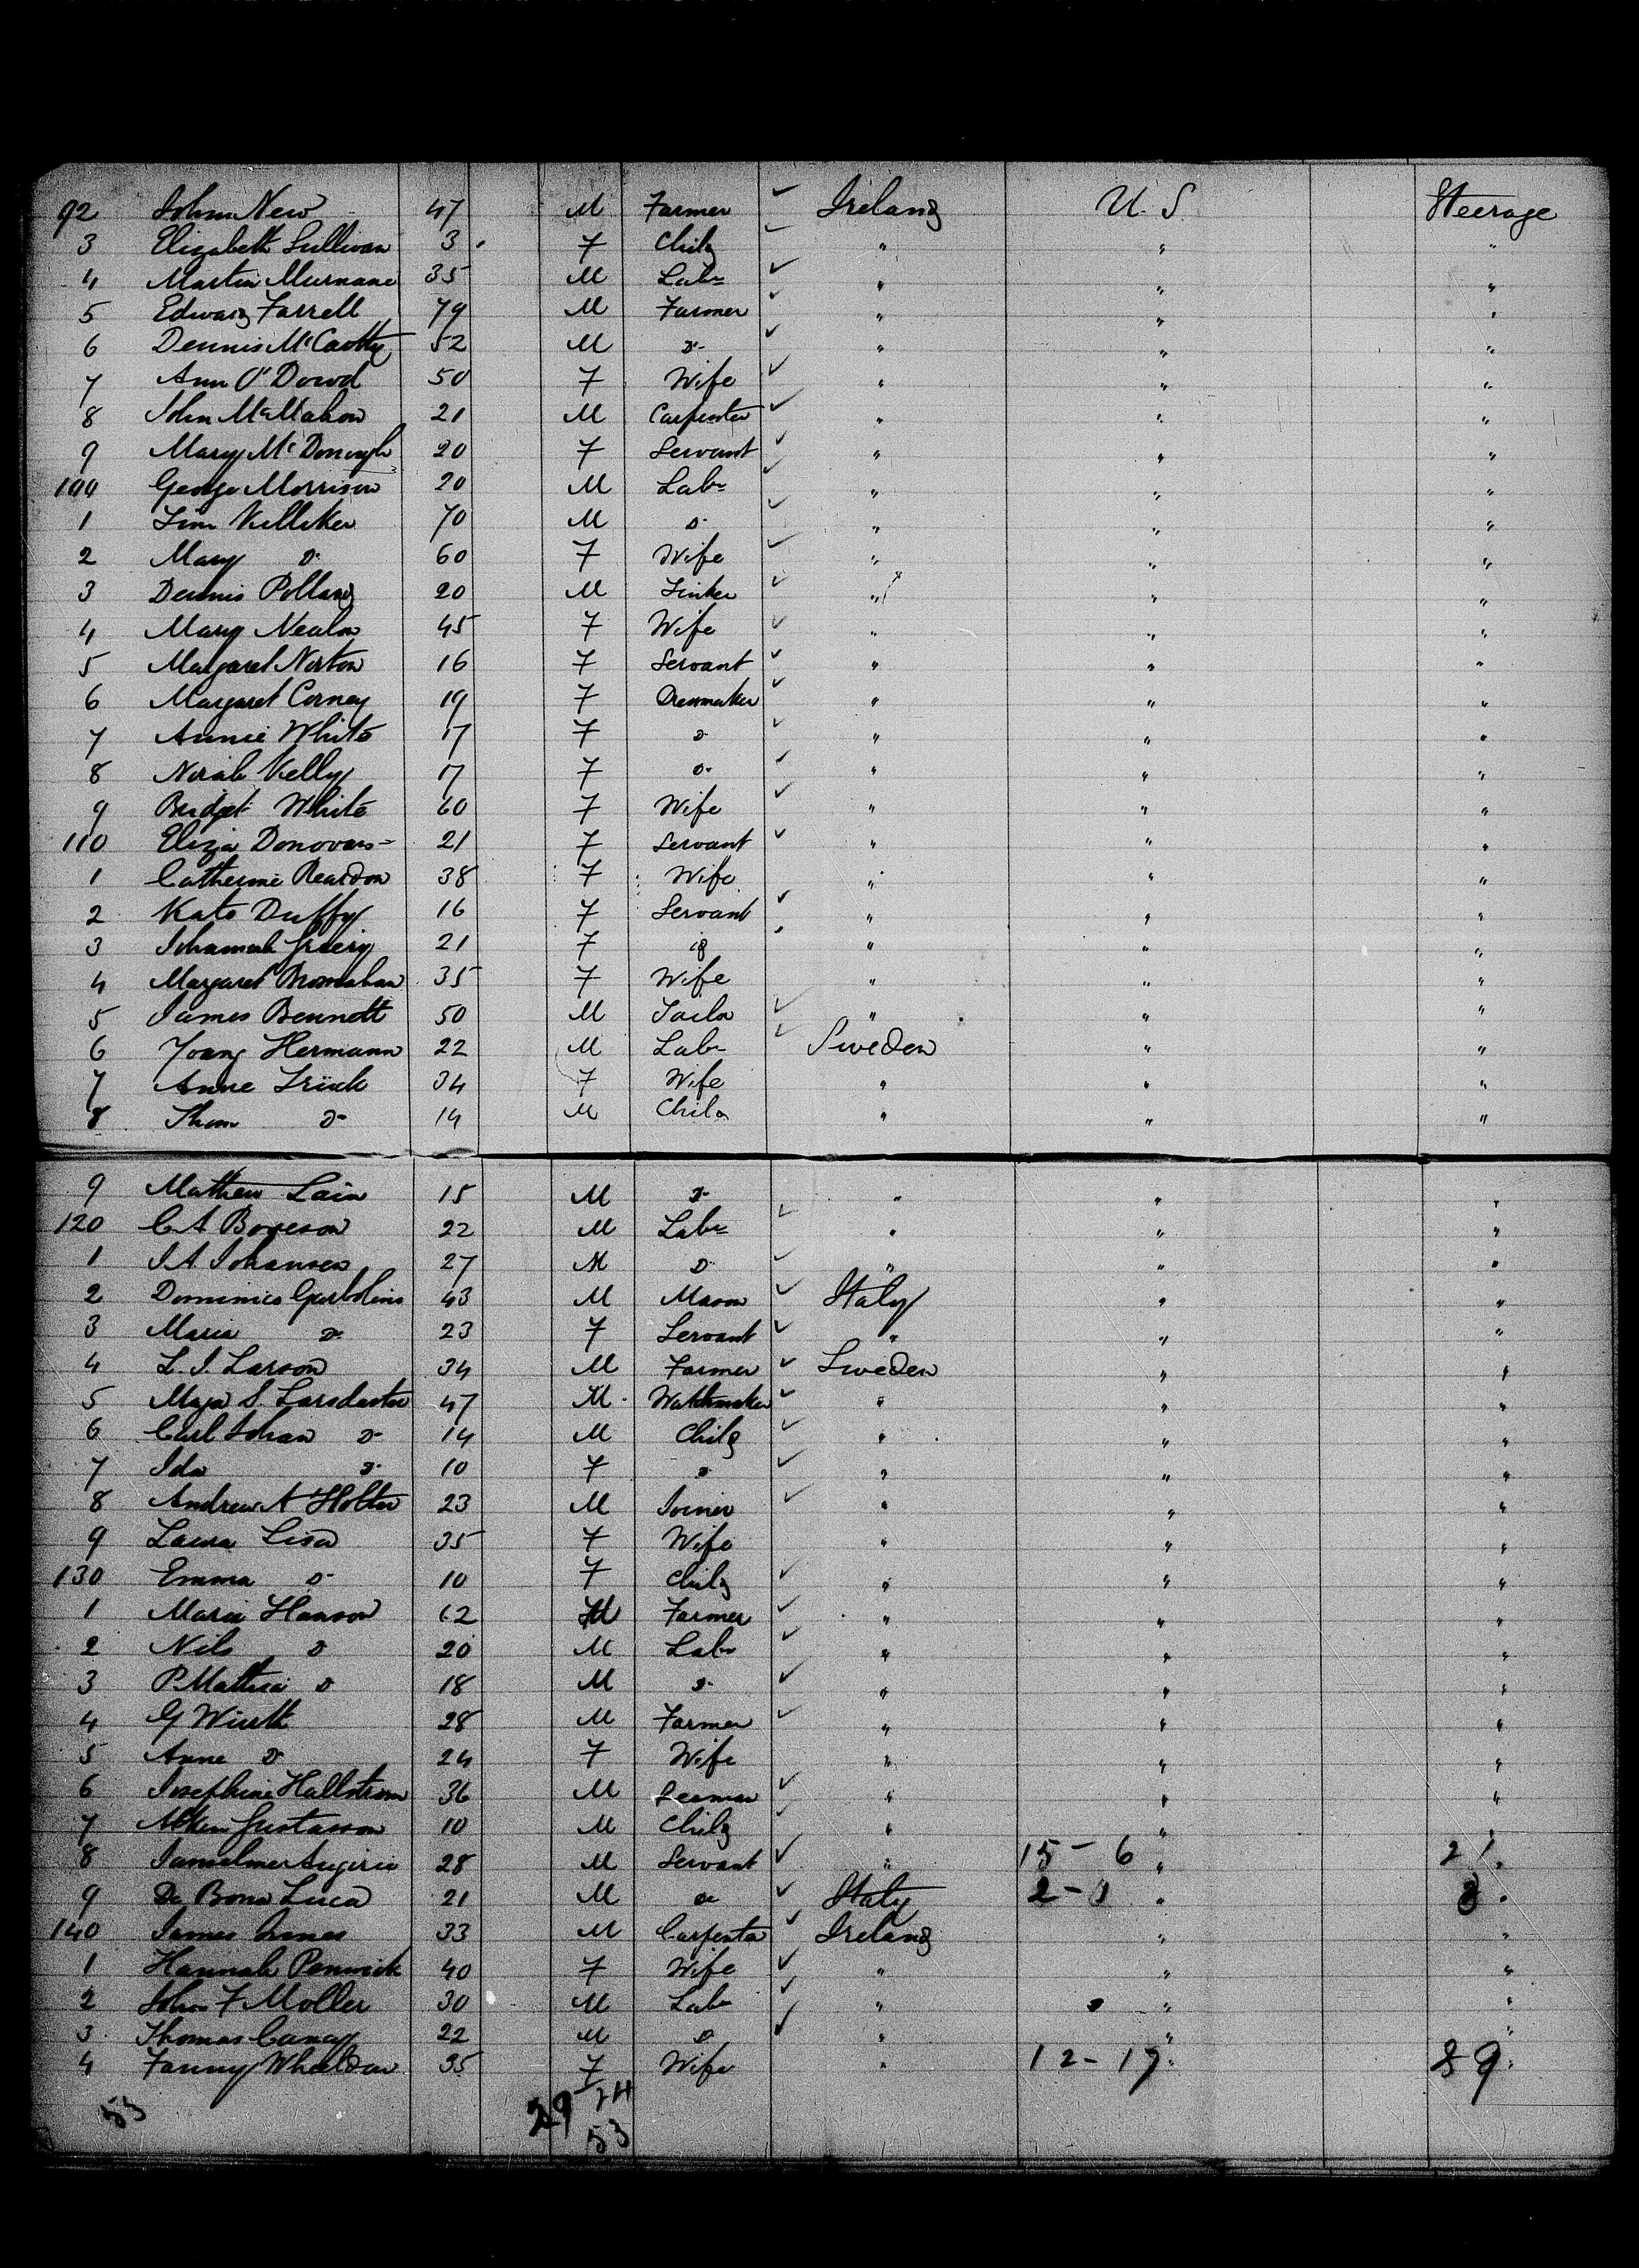 92 John New 47 M Farmer ✓ Ireland U.S. Steerage
3 Elizabeth Sullivan 3 F Child ✓ " " "
4 Martin Murnane 35 M Labr ✓ " " "
5 Edward Farrell 79 M Farmer ✓ " " "
6 Dennis McCarthy 52 M do ✓ " " "
7 Ann O'Dowd 50 F Wife ✓ " " "
8 John McMahon 21 M Carpenter ✓ " " "
9 Mary McDonough 20 F Servant ✓ " " "
100 George Morrison 20 M Labr ✓ " " "
1 Jim Killiker 70 M do ✓ " " "
2 Mary do 60 F Wife ✓ " " "
3 Dennis Pollard 20 M Tinker ✓ " " "
4 Mary Nealon 45 F Wife ✓ " " "
5 Margaret Norton 16 F Servant ✓ " " "
6 Margaret Corney 19 F Dressmaker ✓ " " "
7 Annie White 17 F do ✓ " " "
8 Norah Kelly 17 F do ✓ " " "
9 Bridget White 60 F Wife ✓ " " "
110 Eliza Donovan 21 F Servant ✓ " " "
1 Catherine Reardon 38 F Wife " " "
2 Kate Duffy 16 F Servant ✓ " " "
3 Johannah 21 F do " " "
4 Margaret 35 F Wife " " "
5 James Bennett 50 M Tailor ✓ " " "
6 Hermann 22 M Labr ✓ Sweden " "
7 Anne 34 F Wife " " "
8 Thom do 14 M Child " " "
9 Mathew Lain 15 M do " " "
120 C A 22 M Labr ✓ " " "
1 J A Johansen 27 M do ✓ " " "
2 Dominico 43 M Mason ✓ Italy " "
3 Maria do 23 F Servant ✓ " " "
4 L. J. Larson 34 M Farmer ✓ Sweden " "
5 Maja S. Larsdaster 47 M Watchmaker ✓ " " "
6 Carl Johan do 14 M Child ✓ " " "
7 Ida do 10 F do ✓ " " "
8 Andrew A Holter 23 M Joiner ✓ " " "
9 Laura Lisa 35 F Wife " " "
130 Emma do 10 F Child ✓ " " "
1 Maria Hanson 62 M Farmer ✓ " " "
2 Nils do 20 M Labr ✓ " " "
3 P. do 18 M do ✓ " " "
4 G Wirth 28 M Farmer ✓ " " "
5 Anne do 24 F Wife " " "
6 Josephine Hallstrom 36 M Seaman ✓ " " "
7 Gustasson 10 M Child ✓ " " "
8 28 M Servant ✓ " 15-6 " 21 "
9 De Bona Luca 21 M do ✓ Italy 2-1 " 3 "
140 James 33 M Carpenter ✓ Ireland " "
1 Hannah Penwick 40 F Wife ✓ " " "
2 John F Moller 30 M Labr ✓ " " "
3 Thomas 22 M do ✓ " " "
4 Fanny 35 F Wife " 12-17 " 89 "
53 29 24
53